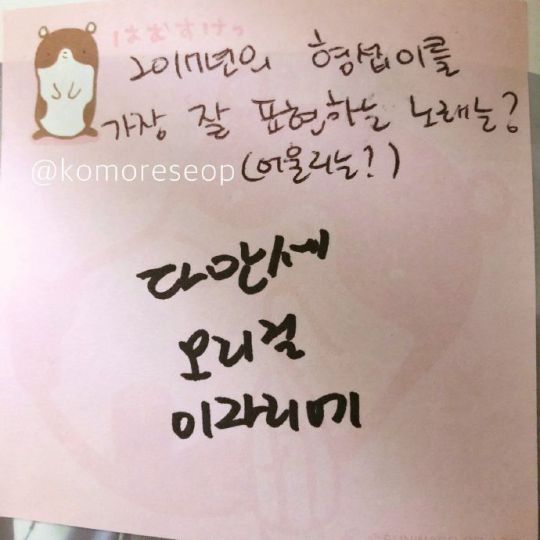 はむすけっ
2017년의 형섭이를
가장 잘 표현하는 노래는?
(어울리는?)
@komoreseop
다만세
오리걸
이자리에